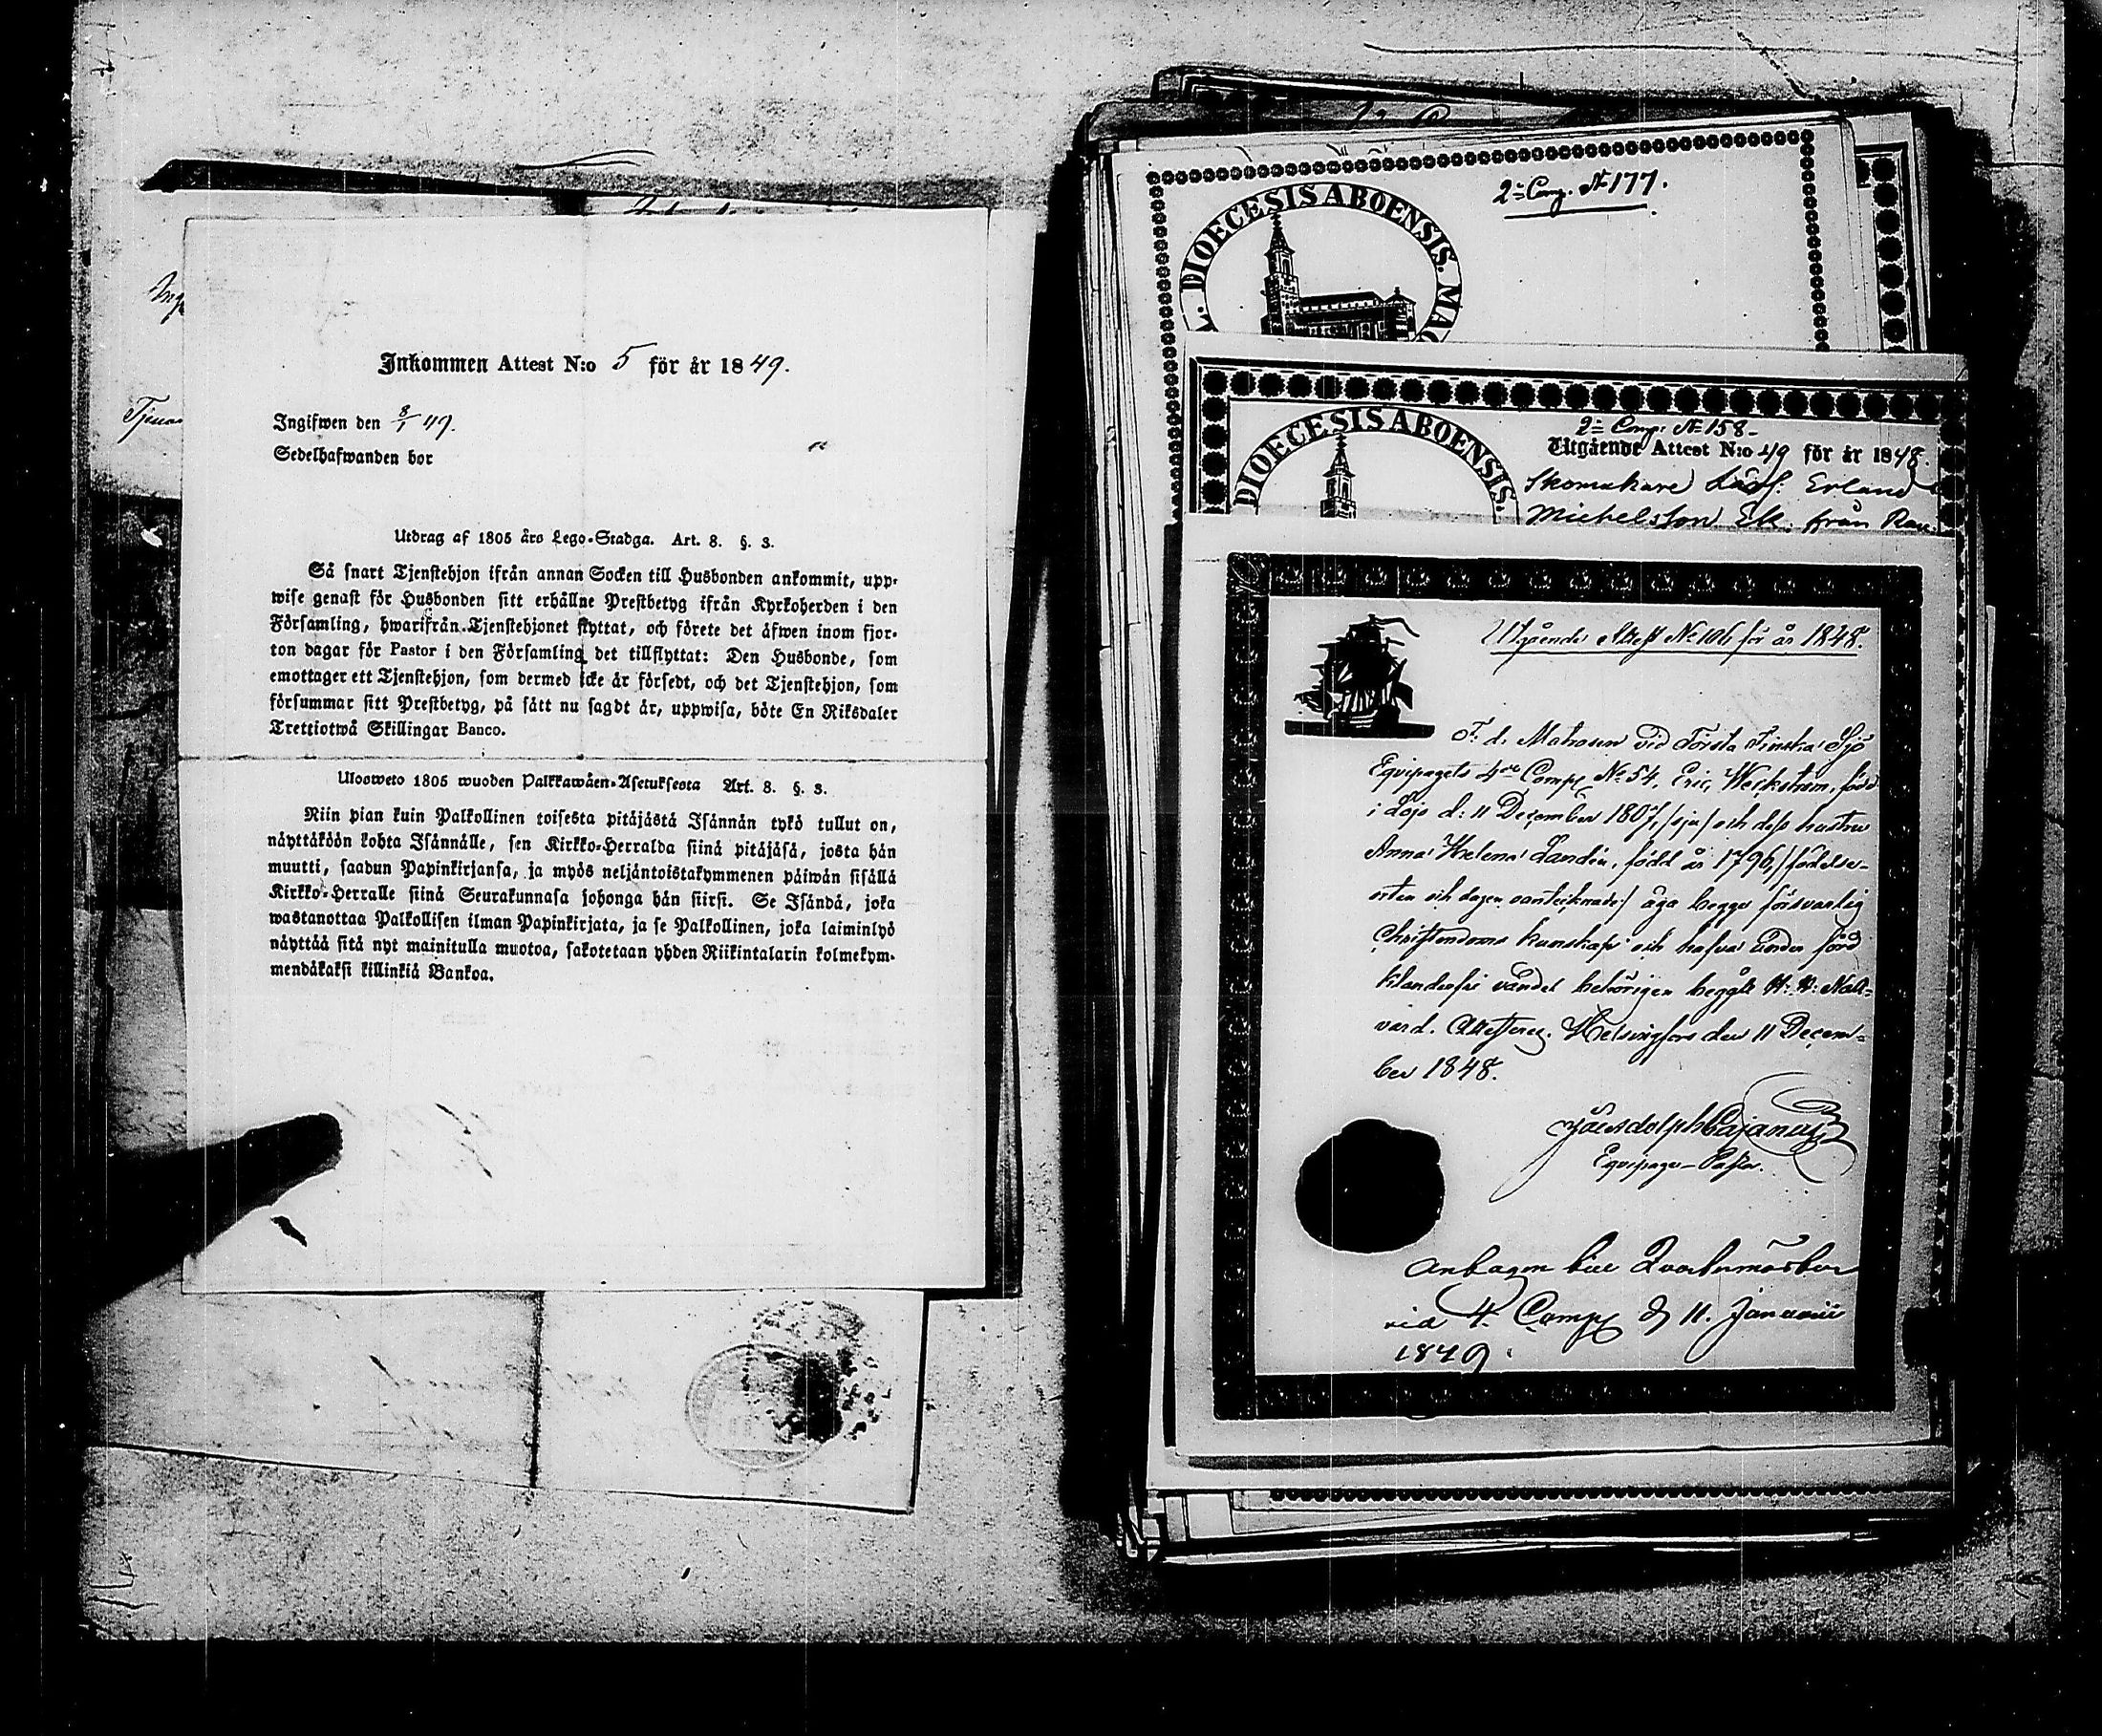 Inkommen Attest N:o 5 för år 1849.
Ingifwen den 8/1 49.
Sedelhafwanden bor
Utdrag af 1805 års Lego-Stadga. Art. 8. §. 3.
Så snart Tjenstehjon ifrån annan Socken till Husbonden ankommit, upp-
wise genast för Husbonden sitt erhållne Prestbetyg ifrån Kyrkoherden i den
Församling, hwarifrån Tjenstehjonet flyttat, och förete det äfwen inom fjor-
ton dagar för Pastor i den Församling det tillflyttat: Den Husbonde, som
emottager ett Tjenstehjon, som dermed icke är försedt, och det Tjenstehjon, som
försummar sitt Prestbetyg, på sätt nu sagdt är, uppwisa, böte En Riksdaler
Trettiotwå Skillingar Banco.
Ulosweto 1805 wuoden Palkkawäen-Asetuksesta Art. 8. §. 3.
Niin pian kuin Palkollinen toisesta pitäjästä Isännän tykö tullut on,
näyttäköön kohta Isännälle, sen Kirkko-Herralda siinä pitäjäsä, josta hän
muutti, saadun Papinkirjansa, ja myös neljäntoistakymmenen päiwän sisällä
Kirkko-Herralle siinä Seurakunnasa johonga hän siirsi. Se Isändä, joka
wastanottaa Palkollisen ilman Papinkirjata, ja se Palkollinen, joka laiminlyö
näyttää sitä nyt mainitulla muotoa, sakotetaan yhden Riikintalarin kolmekym-
mendäkaksi killinkiä Bankoa.
2:a Comp. N 177.
DIOECESIS ABOENSIS. MAG
2:a Comp: N 158
Utgående Attest N:o 49 för år 1848.
DIOECESIS ABOENSIS.
Skomakare Erland
Michelsson Ek från
Utgående Attest No 106 för år 1848.
F. d. Matrosen vid Första Finska Sjö
Equipagets 4de Comp No 54, Eric Weckström, född
i Lojo d: 11 December 1807, och dess hustru
Anna Helena Landén, född år 1796, /födelse-
orten och dagen oantecknade/ äga begge försvarlig
Christendoms kunskap och hafva under förd
klanderfri vandel behörigen begått H. H. Natt-
vard. Attesterar. Helsingfors den 11 Decem-
ber 1848.
Cajanus
Equipage-Pastor.
Antagen till Qvartermästare
vid 4. Comp d 11. Januarii
1849.